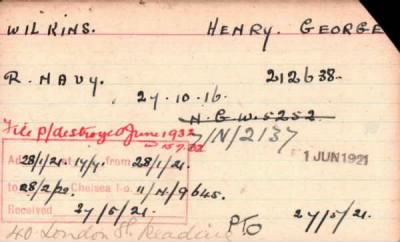 WILKINS. HENRY. GEORGE
R. NAVY. 212638.
27.10.16.
N.G.W.5252
File p/destroyed June 1932 7/N/2137
1 JUN 1921
28/1/21. from 28/1/21.
to 28/2/22. Chelsea No. 11/N/9645.
Received 27/5/21. PTO 27/5/21.
40 London St. Reading